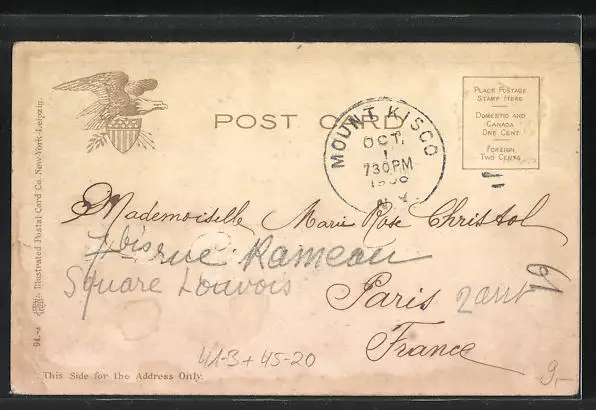 POST CARD
PLACE POSTAGE
STAMP HERE
DOMESTIC AND
CANADA
ONE CENT
FOREIGN
TWO CENTS
MOUNT KISCO
OCT.
1
730PM
N.Y.
Mademoiselle Marie Rose Christol
7 bis rue Rameau
Square Louvois
Paris 2 arrt
France
41-3+45-20
9.-
This Side for the Address Only.
94.- Illustrated Postal Card Co. New-York-Leipzig.